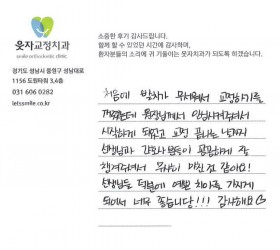 웃자교정치과
smile orthodontic clinic
경기도 성남시 중원구 성남대로
1156 도원타워 3,4층
031 606 0282
letssmile.co.kr
소중한 후기 감사드립니다.
함께 할 수 있었던 시간에 감사하며,
환자분들의 소리에 귀 기울이는 웃자치과가 되도록 하겠습니다.
처음에 발치가 무서워서 교정하기를
원장님께서
시작하게 되었고 교정 끝나는 날까지
선생님과 간호사 분들이 꼼꼼하게 잘
챙겨주셔서 무사히 마친 것 같아요!
선생님들 덕분에 예쁜 치아를 가지게
되어서 너무 좋습니다!!! 감사해요